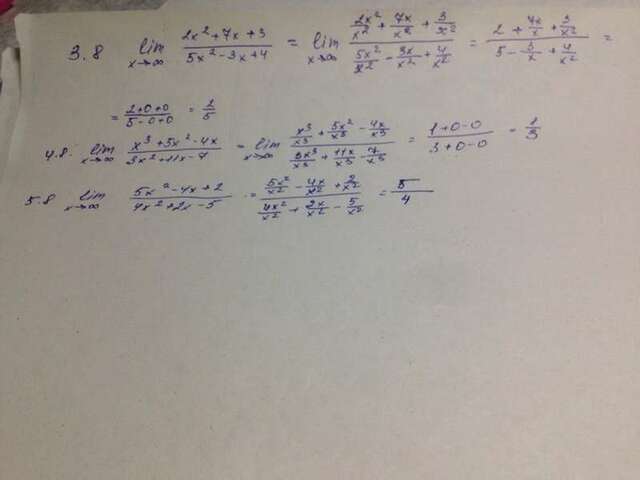 3.8 lim x→∞ (2x² + 7x + 3)/(5x² - 3x + 4) = lim x→∞ (2x²/x² + 7x/x² + 3/x²)/(5x²/x² - 3x/x² + 4/x²) = (2 + 7x/x + 3/x²)/(5 - 3/x + 4/x²) =
= (2+0+0)/(5-0+0) = 2/5
4.8. lim x→∞ (x³ + 5x² - 4x)/(3x² + 11x - 7) = lim x→∞ (x³/x³ + 5x²/x³ - 4x/x³)/(3x³/x³ + 11x/x³ - 7/x³) = (1+0-0)/(3+0-0) = 1/3
5.8 lim x→∞ (5x² - 4x + 2)/(4x² + 2x - 5) = (5x²/x² - 4x/x² + 2/x²)/(4x²/x² + 2x/x² - 5/x²) = 5/4